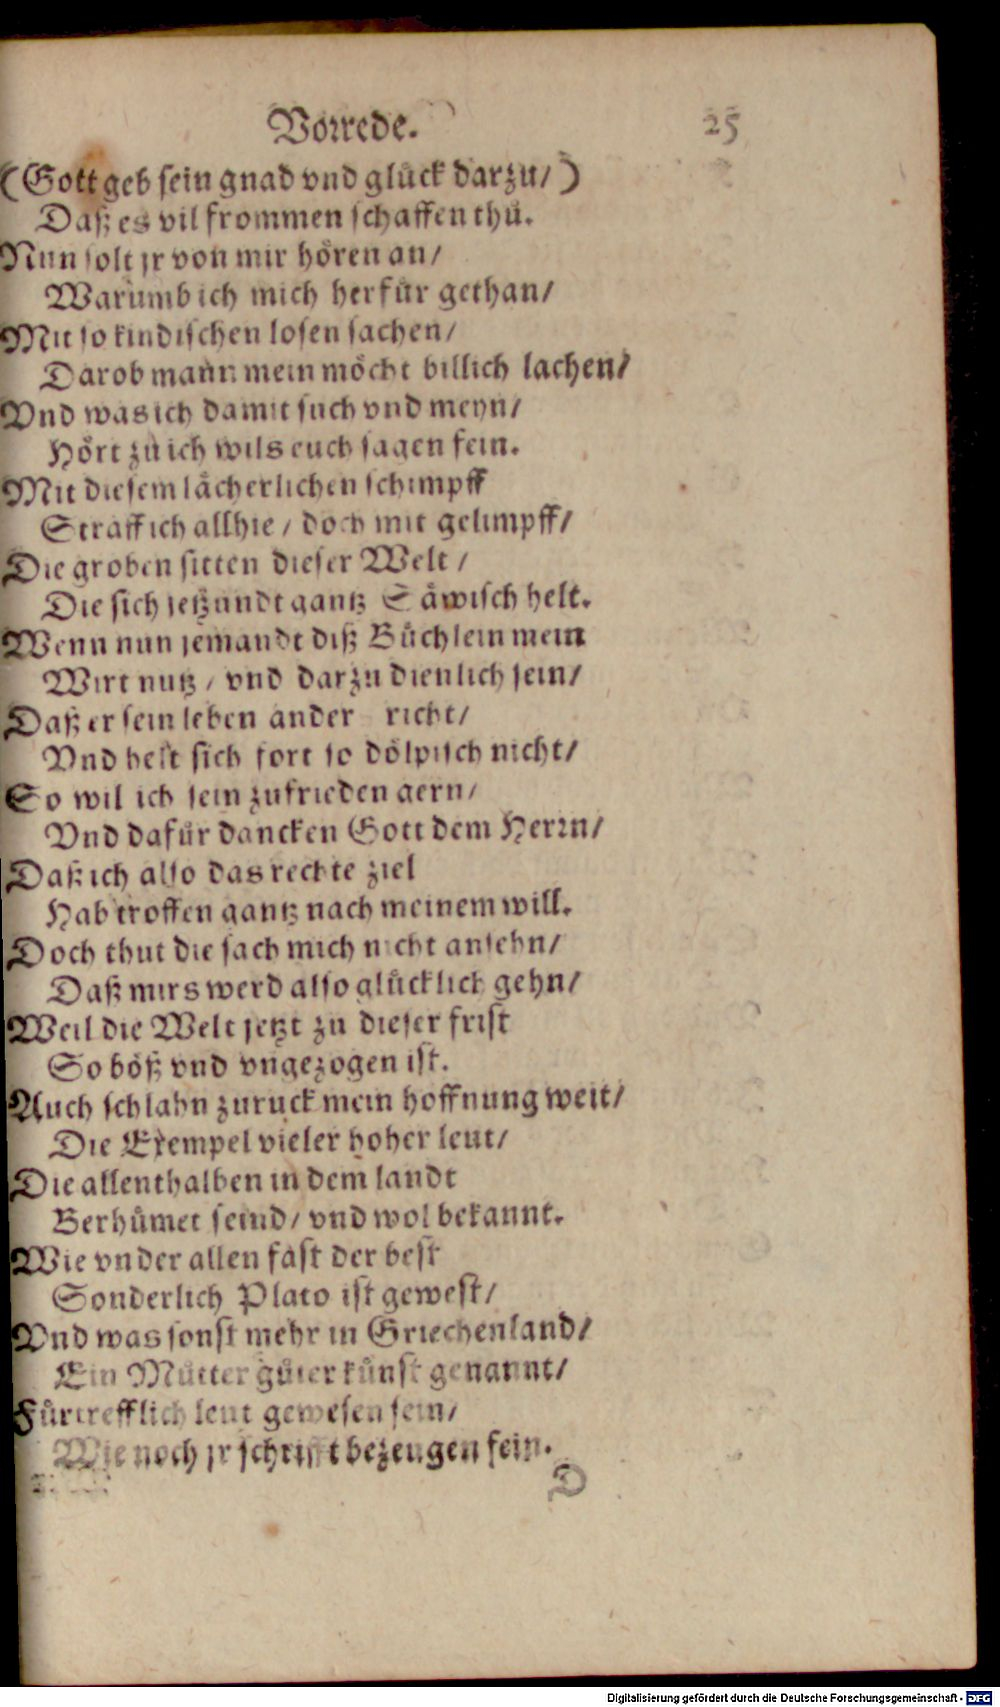 Vorrede. 25
(Gott geb sein gnad vnd glück darzu/)
Daß es vil frommen schaffen thu.
Nun solt jr von mir hören an/
Warumb ich mich herfür gethan/
Mit so kindischen losen sachen/
Darob mann mein möcht billich lachen/
Vnd was ich damit such vnd meyn/
Hört zu ich wils euch sagen fein.
Mit diesem lächerlichen schimpff
Straff ich allhie / doch mit gelimpff/
Die groben sitten dieser Welt /
Die sich jetzundt gantz Säwisch helt.
Wenn nun jemandt diß Büchlein mein
Wirt nutz / vnd darzu dienlich sein/
Daß er sein leben ander richt/
Vnd helt sich fort so dölpisch nicht/
So wil ich sein zufrieden gern/
Vnd dafür dancken Gott dem Herrn/
Daß ich also das rechte ziel
Hab troffen gantz nach meinem will.
Doch thut die sach mich nicht ansehn/
Daß mirs werd also glücklich gehn/
Weil die Welt jetzt zu dieser frist
So böß vnd vngezogen ist.
Auch schlahn zuruck mein hoffnung weit/
Die Exempel vieler hoher leut/
Die allenthalben in dem landt
Berhümet seind/ vnd wol bekannt.
Wie vnder allen fast der best
Sonderlich Plato ist gewest/
Vnd was sonst mehr in Griechenland/
Ein Mutter guter künst genannt/
Fürtrefflich leut gewesen sein/
Wie noch jr schrifft bezeugen fein.
D
Digitalisierung gefördert durch die Deutsche Forschungsgemeinschaft - DFG